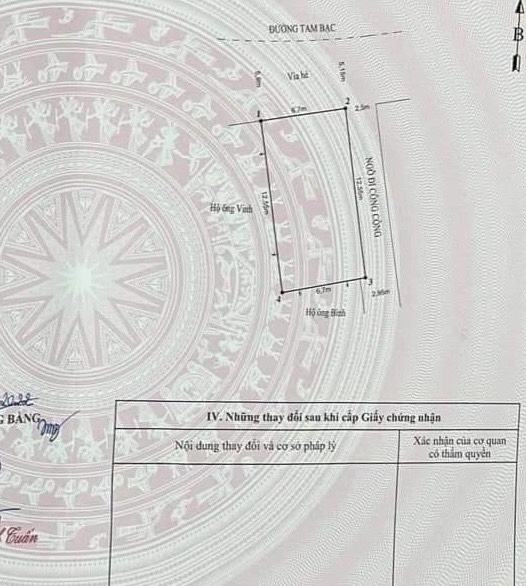 ĐƯỜNG TAM BẠC
B
Vỉa hè
5,15m
1
6,7m
2
2,5m
NGÕ ĐI CÔNG CỘNG
12,55m
12,55m
Hộ ông Vinh
3
4
6,7m
2,95m
Hộ ông Bình
2022
G BÀNG
IV. Những thay đổi sau khi cấp Giấy chứng nhận
Nội dung thay đổi và cơ sở pháp lý
Xác nhận của cơ quan
có thẩm quyền
Tuấn